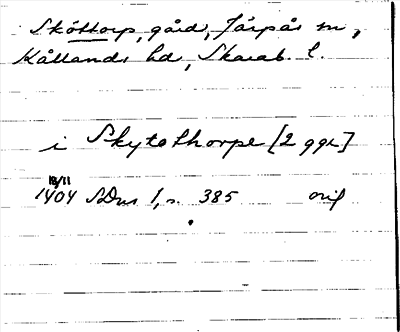 Sköttorp, gård, Järpås sn,
Kållands hd, Skarab. l.
i Skytothorpe [2 ggr]
18/11
1404 SDns 1, s. 385 orig